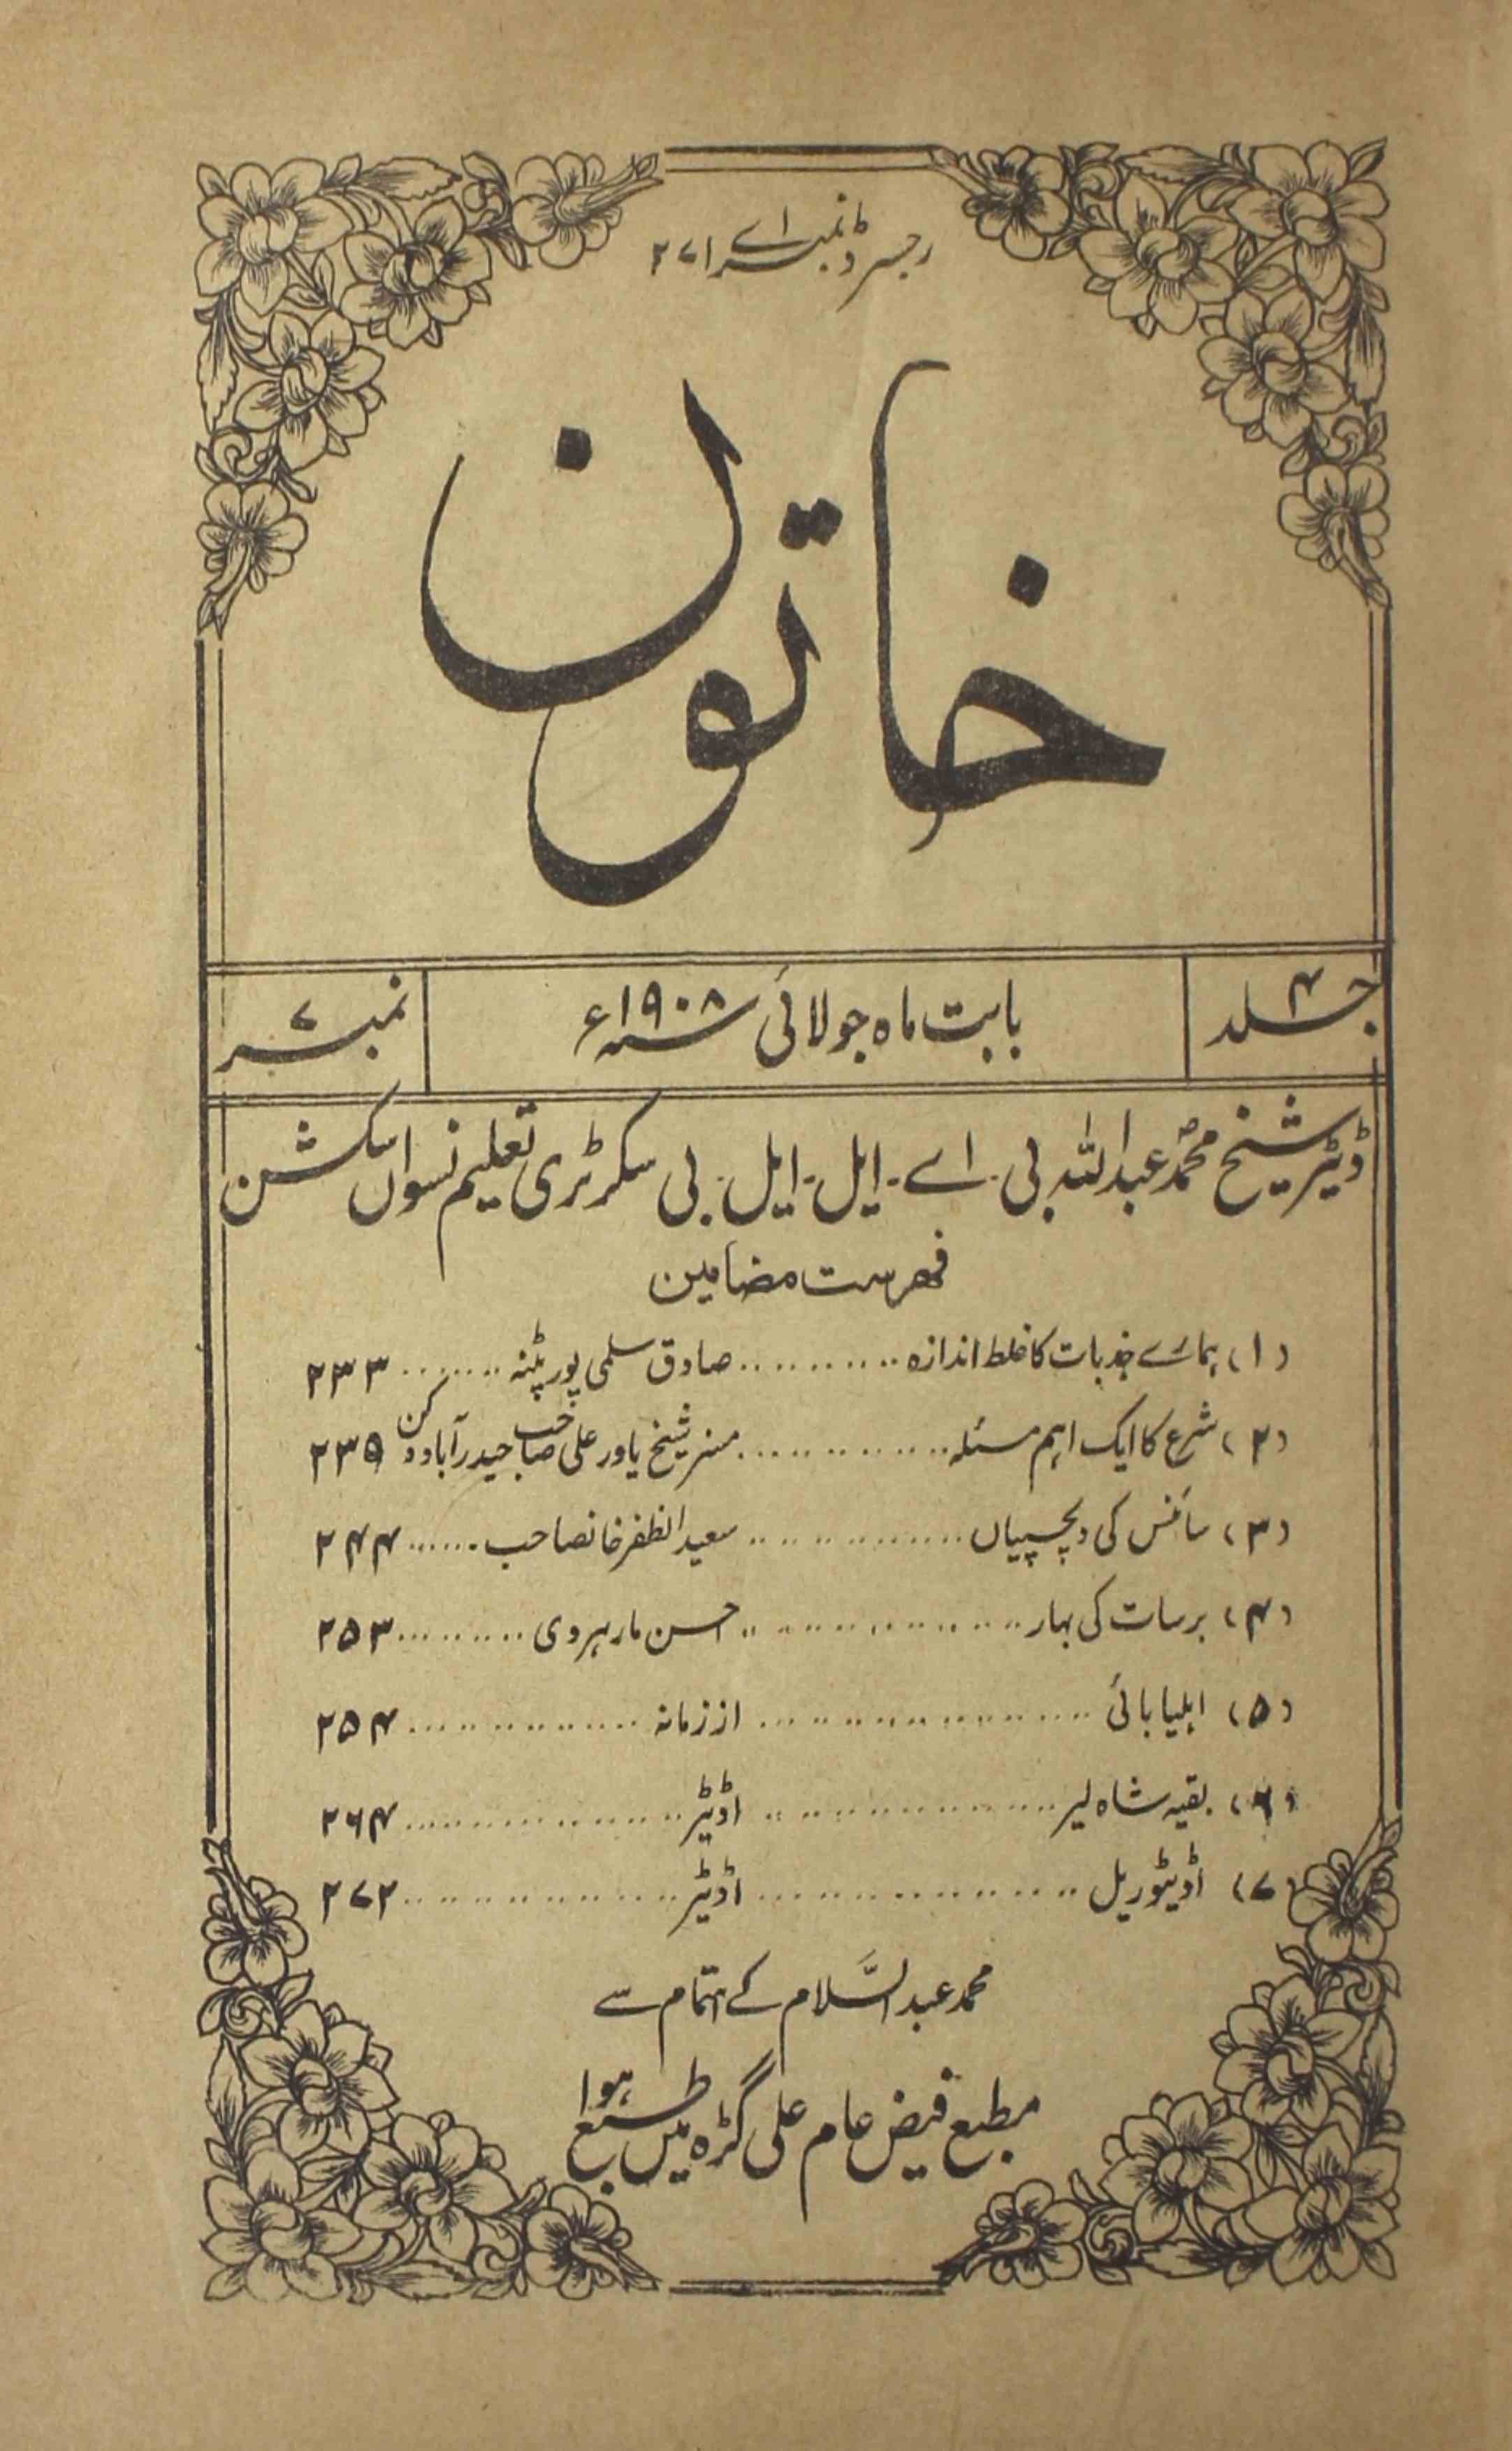 رجسٹرڈ نمبر اے ۲۷۱
خاتون
جلد ۴
بابت ماہ جولائی سنہ ۱۹۰۸ء
نمبر ۷
ڈیٹر شیخ محمد عبداللہ بی-اے-ایل-ایل-بی سکرٹری تعلیم نسواں سکشن
فہرست مضامین
(۱) ہمارے جذبات کا غلط اندازہ .......... صادق سلمی پور پٹنہ ....... ۲۳۳
(۲) شرع کا ایک اہم مسئلہ .......... مسز شیخ یاور علی صاحب حیدرآباد دکن ۲۳۵
(۳) سائنس کی دلچسپیاں .......... سعید الظفر خانصاحب ....... ۲۴۴
(۴) برسات کی بہار .......... احسن مارہروی ....... ۲۵۳
(۵) اہلیا بائی .......... از زمانہ ....... ۲۵۴
(۶) بقیہ شاہ لیر .......... اڈیٹر ....... ۲۶۴
(۷) اڈیٹوریل .......... اڈیٹر ....... ۲۷۲
محمد عبدالسَّلام کے اہتمام سے
مطبع فیض عام علی گڑہ میں طبع ہوا